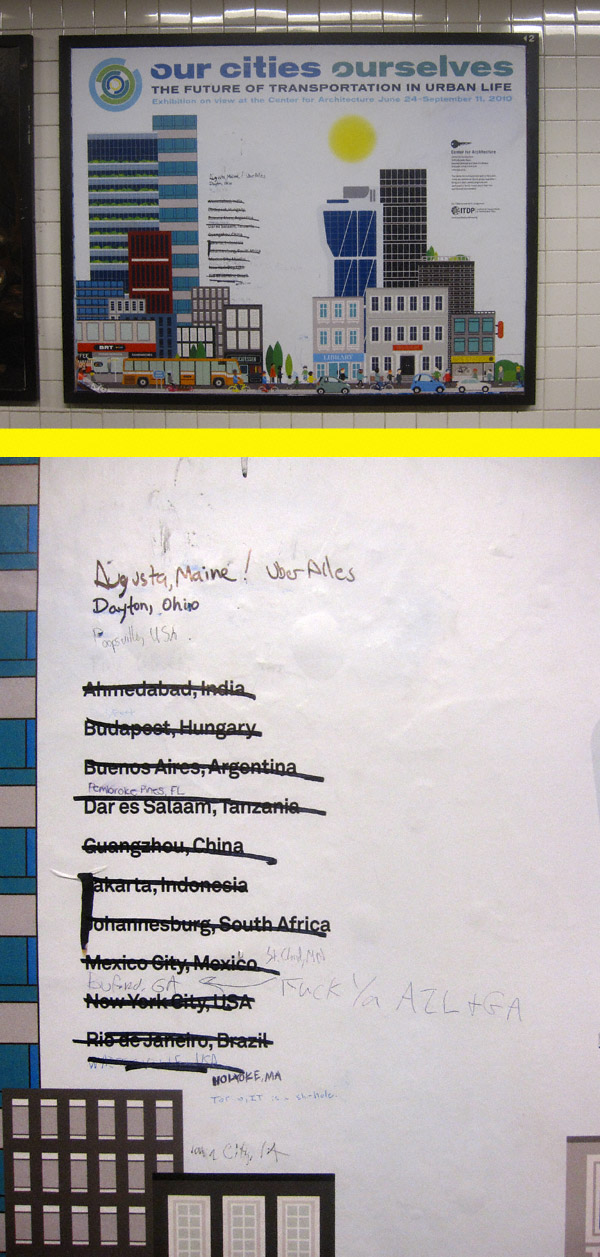 our cities ourselves
THE FUTURE OF TRANSPORTATION IN URBAN LIFE
Exhibition on view at the Center for Architecture June 24–September 11, 2010
Augusta, Maine! Uber Alles
Dayton, Ohio
Center for Architecture
ITDP
BRT
LIBRARY
Augusta, Maine! Uber Alles
Dayton, Ohio
Poopsville, USA
Ahmedabad, India
Budapest, Hungary
Buenos Aires, Argentina
Pembroke Pines, FL
Dar es Salaam, Tanzania
Guangzhou, China
Jakarta, Indonesia
Johannesburg, South Africa
Mexico City, Mexico
St. Cloud, MN
buford, GA
Fuck Ya ATL + GA
New York City, USA
Rio de Janeiro, Brazil
USA
HOLYOKE, MA
is a
City, IA